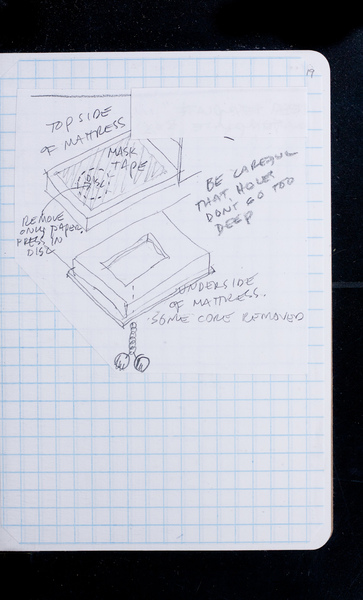 19
TOPSIDE
OF MATTRESS
MASK
TAPE
DISC
BE CAREFUL
THAT HOLES
DON'T GO TOO
DEEP
REMOVE
ONLY PAPER
PRESS IN
DISC
UNDERSIDE
OF MATTRESS.
SOME CORE REMOVED